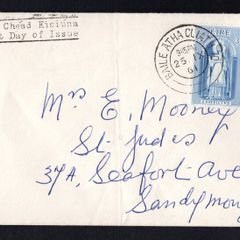 Chéad Eisiúna
t Day of Issue
BAILE ÁTHA CLIATH
EIRE
Mrs E. Mooney
St. Judes
37A, Seafort Ave
Sandymou